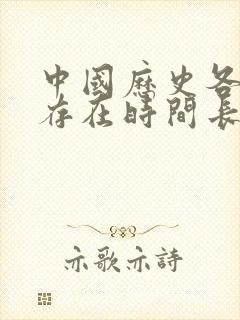 中國歷史各
存在時間長
亦歌亦詩